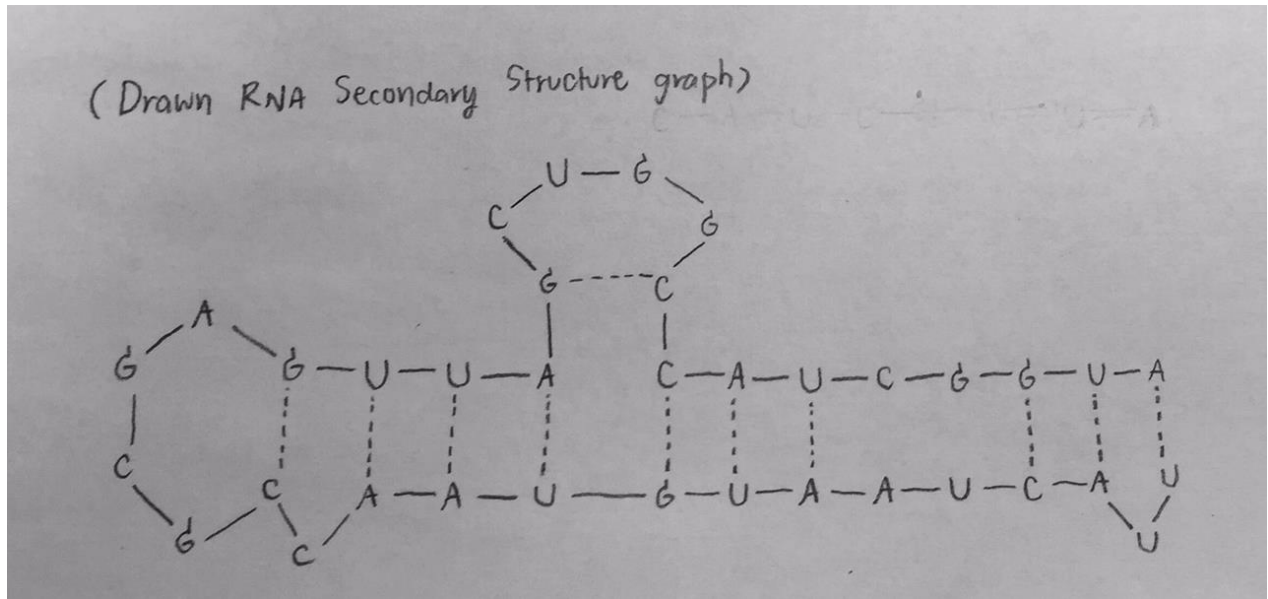 (Drawn RNA Secondary Structure graph)
U — G
C G
G ----- C
A
G G — U — U — A C — A — U — C — G — G — U — A
C
C A — A — U — G — U — A — A — U — C — A U
G C U